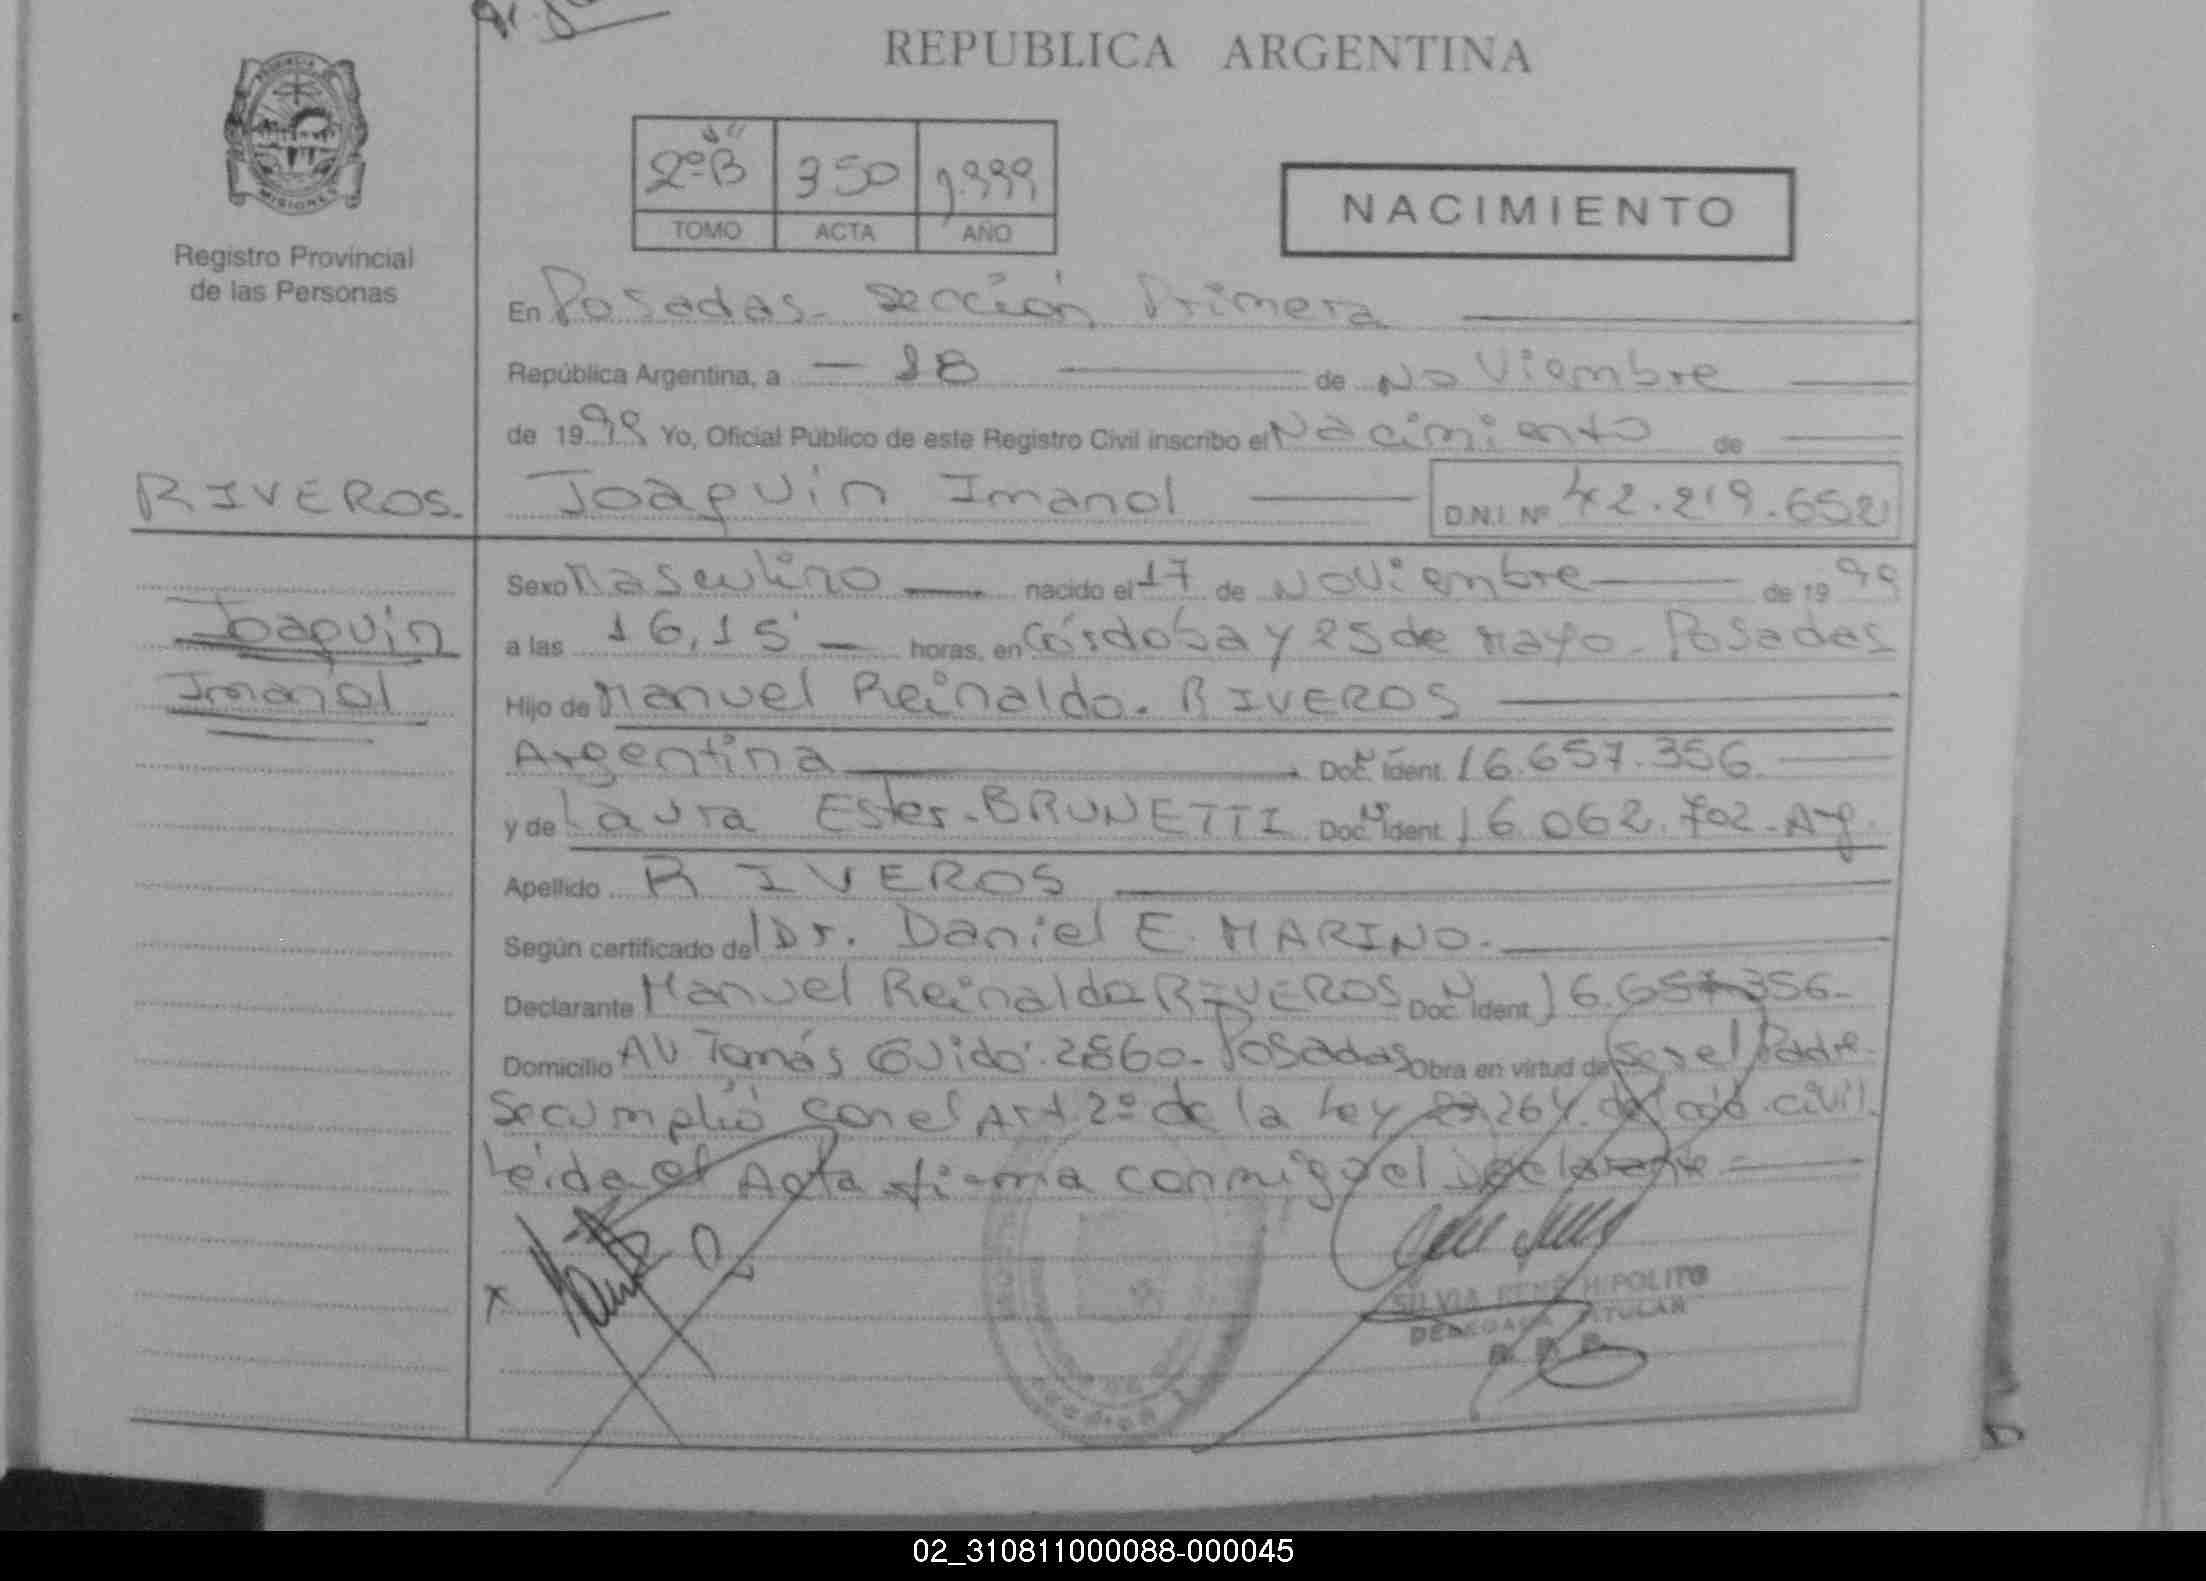 REPUBLICA ARGENTINA
PROVINCIA
MISIONES
Registro Provincial
de las Personas
2º "B" 350 1.999
TOMO ACTA AÑO
NACIMIENTO
En Posadas - Sección Primera
República Argentina, a - 18 de Noviembre
de 1999 Yo, Oficial Público de este Registro Civil inscribo el Nacimiento de
RIVEROS. Joaquin Imanol D.N.I. Nº 42.219.652
Sexo Masculino nacido el 17 de Noviembre de 1999
Joaquin
Imanol
a las 16,15' horas, en Córdoba y 25 de Mayo - Posadas
Hijo de Manuel Reinaldo. RIVEROS
Argentina Doc. Ident. 16.657.356
y de Laura Ester - BRUNETTI Doc. Ident. 16.062.702 - Arg.
Apellido RIVEROS
Según certificado del Dr. Daniel E. MARINO.
Declarante Manuel Reinaldo RIVEROS Doc. Ident. 16.657.356-
Domicilio AV Tomás Guido. 2860 - Posadas Obra en virtud de Ser el Padre
Se cumplió con el Art. 2º de la Ley 23264 del cód. civil.
Leida el Acta firma conmigo el Declarante
x
SILVIA HIPOLITO
DELEGADA TITULAR
02_310811000088-000045